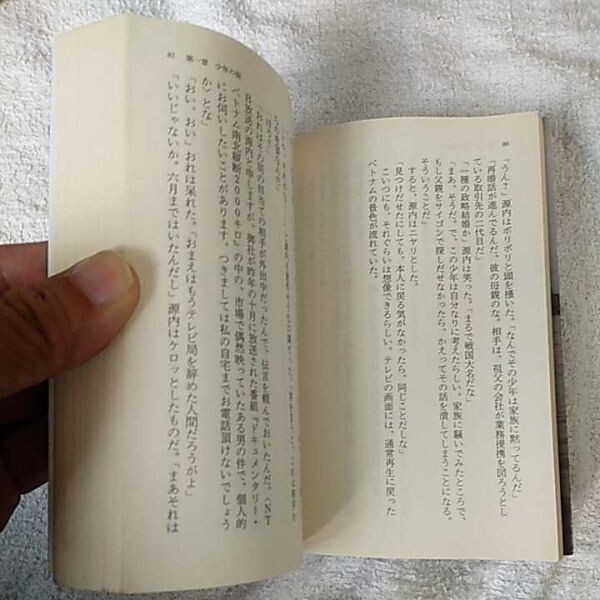 80
「うん?」源内はポリポリと頭を掻いた。「なんでその少年は家族に黙ってるんだ」
「再婚話が進んでるんだ。彼の母親のな。相手は、祖父の会社が業務提携を図ろうとし
ている取引先の二代目だ」
「一種の政略結婚か」源内は笑った。「まるで戦国大名だな」
「まあ、そうだ。で、この少年は自分なりに考えたらしい。家族に騒いでみたところで、
もし父親をサイゴンで探しだせなかったら、かえってその話を潰してしまうことになる。
そういうことだ」
すると、源内はニヤリとした。
「見つけだせたにしても、本人に戻る気がなかったら、同じことだしな」
こいつにも、それぐらいは想像できるらしい。テレビの画面には、通常再生に戻った
ベトナムの景色が流れていた。
81 第一章 少年の
「おれはその局の自当ての相手が外出中だったんで、伝言を頼んでおいたんだ。〈NT
B放送の源内と申しますが、御社が昨年の十月に放送された番組『ドキュメンタリー・
ベトナム南北縦断2000キロ』の中の、市場で偶然映っていたある男の件で、個人的
にお伺いしたいことがあります。つきましては私の自宅までお電話頂けないでしょう
か〉とな」
「おい、おい」おれは呆れた。「おまえはもうテレビ局を辞めた人間だろうがよ」
「いいじゃないか。六月まではいたんだし」源内はケロッとしたものだ。「まあそれは